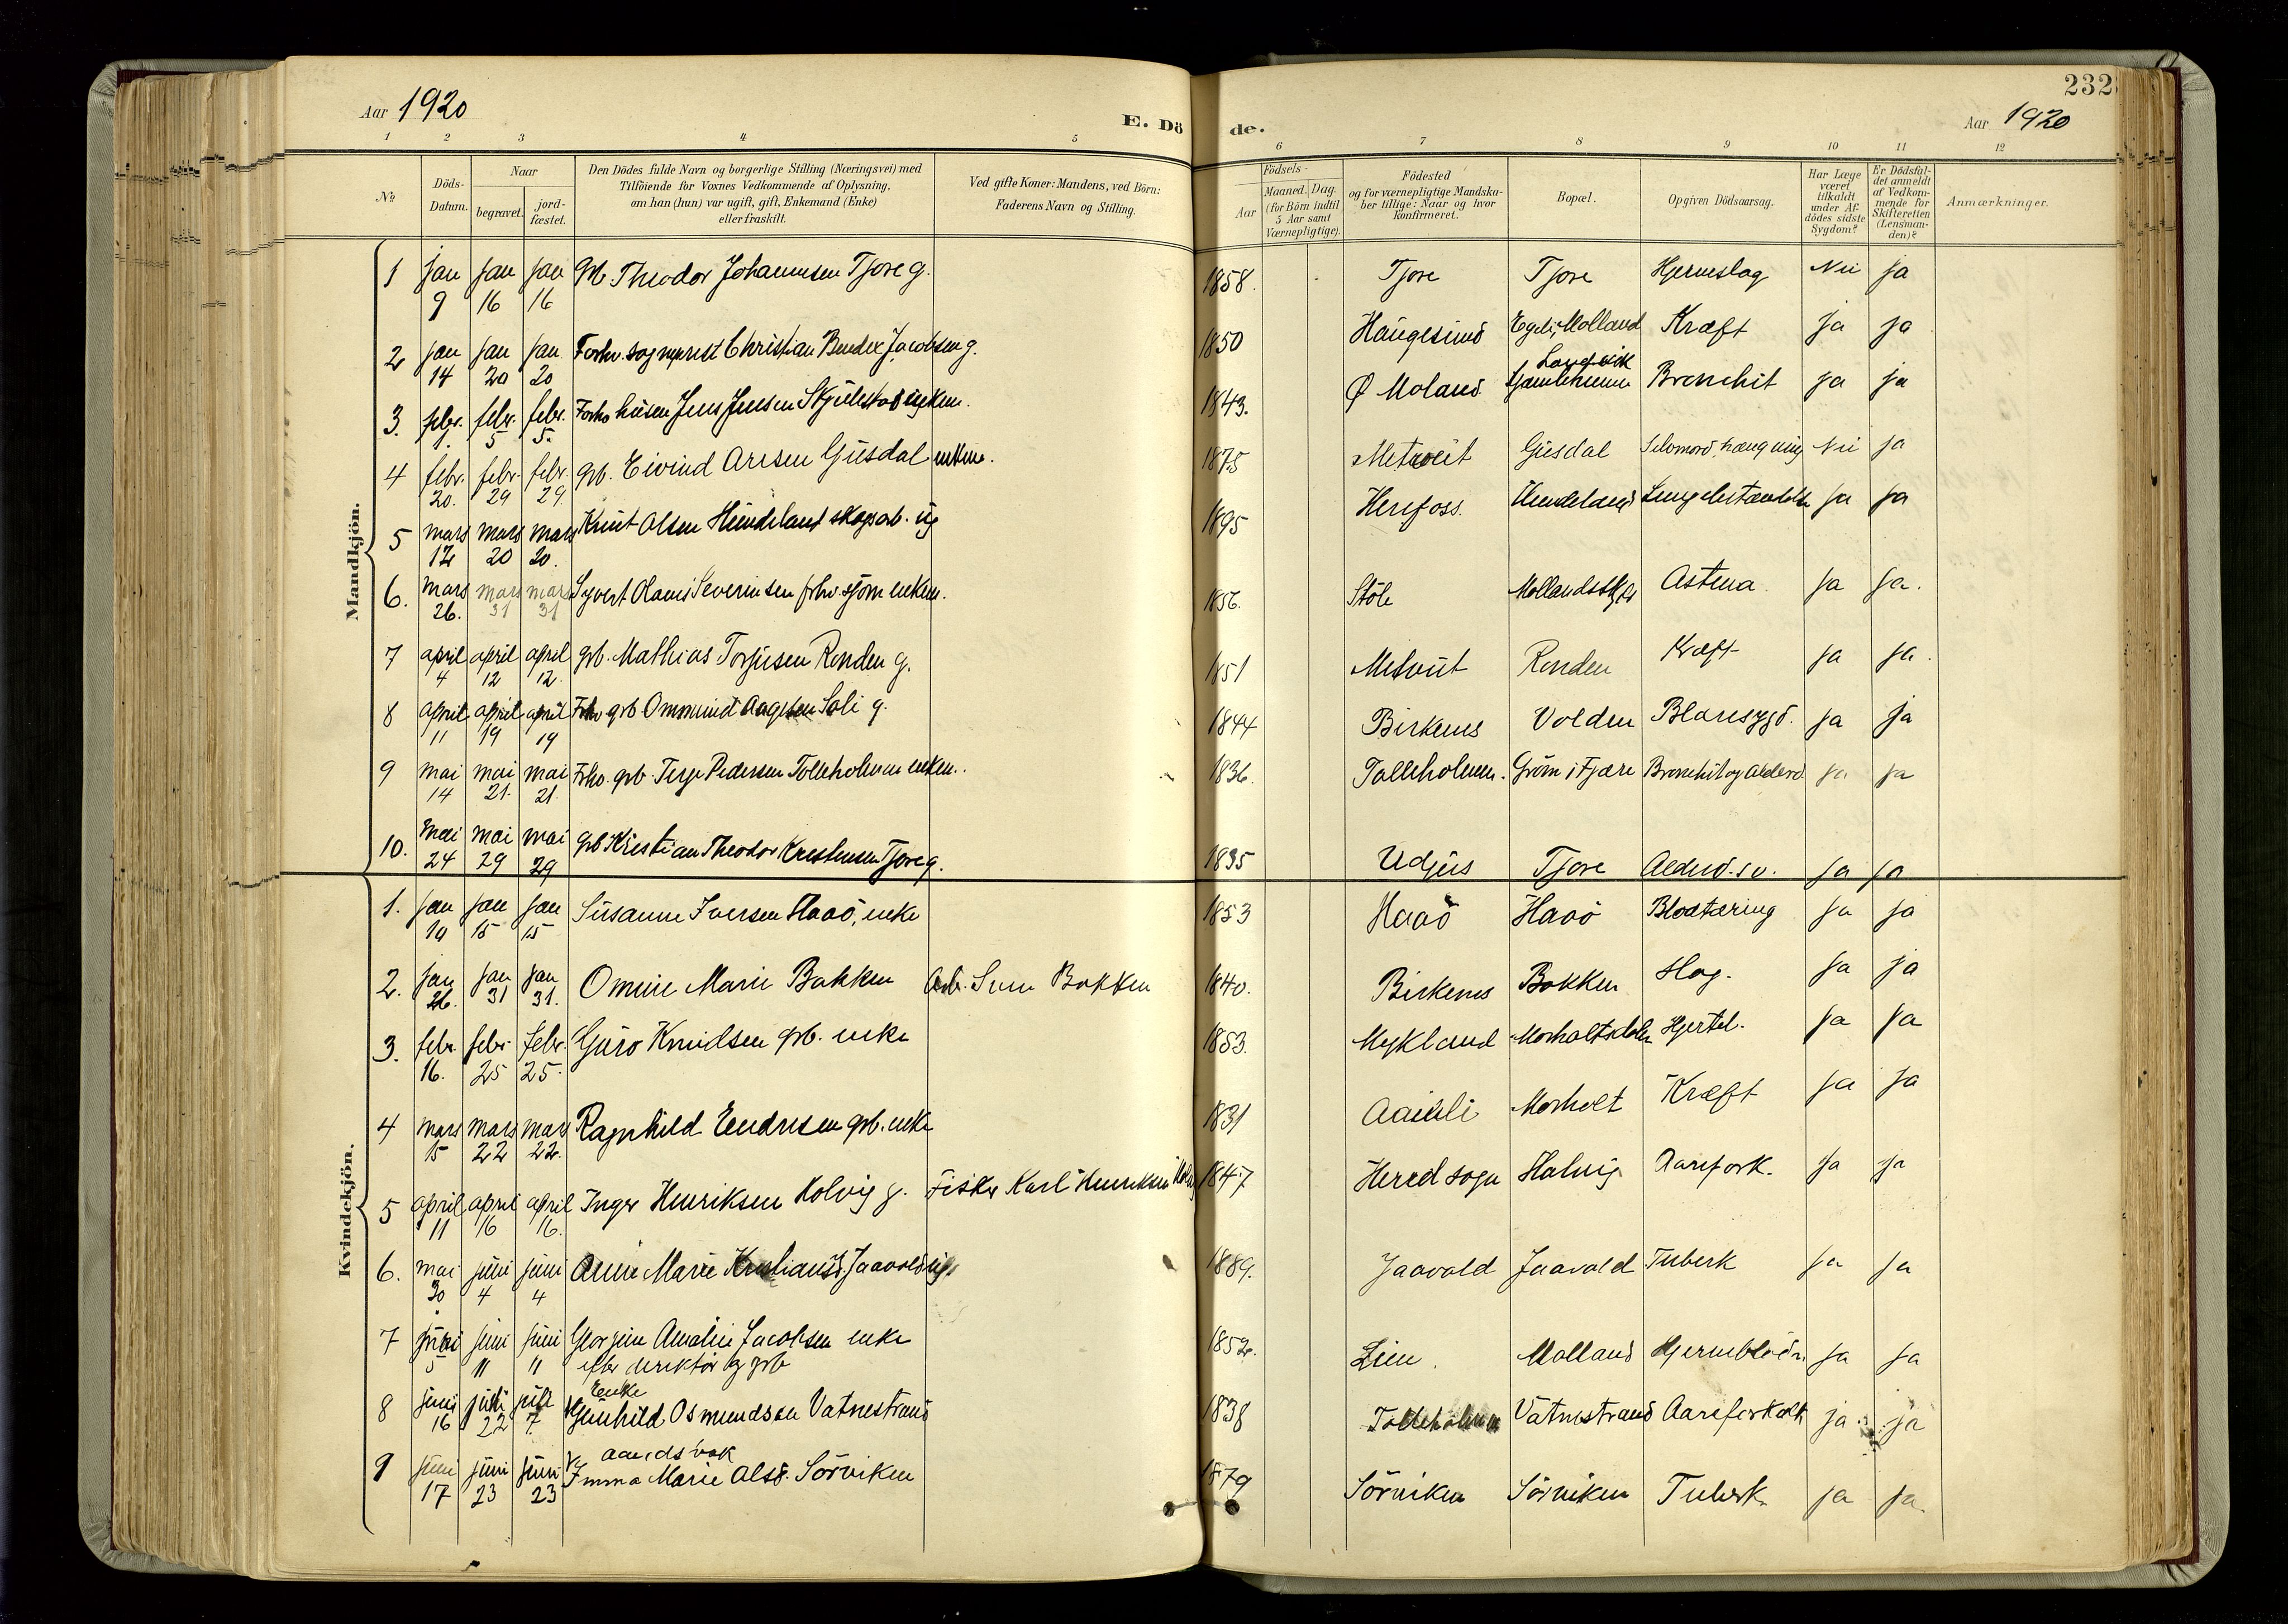 232
Aar 1920
E. Döde.
Aar 1920
1 2 3 4 5 6 7 8 9 10 11 12
№
Döds-Datum.
Naar
begravet.
jord-fæstet.
Den Dödes fulde Navn og borgerlige Stilling (Næringsvei) med
Tilföiende for Voxnes Vedkommende af Oplysning,
om han (hun) var ugift, gift, Enkemand (Enke)
eller fraskilt.
Ved gifte Koner: Mandens, ved Börn:
Faderens Navn og Stilling.
Födsels-
Aar
Maaned. Dag.
(for Börn indtil
5 Aar samt
Værnepligtige).
Födested
og for værnepligtige Mandska-
ber tillige: Naar og hvor
konfirmeret.
Bopæl.
Opgiven Dödsaarsag.
Har Læge
været
tilkaldt
under Af-
dödes sidste
Sygdom?
Er Dödsfal-
det anmeldt
af Vedkom-
mende for
Skifteretten
(Lensman-
den)?
Anmærkninger.
Mandkjön.
1 jan 9 jan 16 jan 16 Gb Theodor Johannsen Tjore g. 1858. Tjore Tjore Hjerneslag Nei ja
2 jan 14 jan 20 jan 20 Forhv. sogneprest Christian Bendix Jacobsen g. 1850 Haugesund Egeli, Molland Kræft ja ja
3. febr. 1. febr. 5 febr. 5. Forhv husm Jens Jensen Skjulestad enkem. 1843. Ø Moland Langvik Bronchit ja ja
4 febr. 20. febr. 29 febr. 29. gb. Eivind Aresen Gusdal enkem. 1875 Metveit Gusdal Selvmord, hængning Nei ja
5 mars 12 mars 20 mars 20. Knut Olsen Hundeland skogsarb. ug 1895 Herefoss. Hundeland Lungebetændelse ja ja
6. mars 26. mars 31 mars 31 Syvert Olaus Severinsen fhv. sjöm enkem. 1856. Støle Mollandsskjær Astma ja ja.
7 april 4 april 12 april 12. gb. Mathias Torjusen Ronden g. 1851 Metveit Ronden Kræft ja ja.
8 april 11 april 19 april 19 Fhv gb Ommund Aagesen Soli g. 1844 Birkenes Volden Blæresygd. ja ja
9 mai 14 mai 21. mai 21. Fhv. gb. Terje Pedersen Tolleholmen enkem. 1836. Tolleholmen. Gröm i Fjære Bronchit og Alderd ja ja
10. mai 24 mai 29 mai 29 gb Kristian Theodor Kristensen Tjore g. 1835 Udjus Tjore Alderd. sv. ja ja
Kvindekjön.
1. jan 10 jan 15 jan 15 Susanne Iversen Haaö, enke 1853 Haaö Haaö Blodtæring ja ja
2. jan 26. jan 31 jan 31. Omine Marie Bakken Arb. Sven Bakken 1840. Birkenes Bakken Slag. ja ja
3. febr. 16. febr. 25 febr. 25. Guro Knudsen gb. enke 1853. Mykland Morholtsdalen Hjertel. ja ja
4 mars 15 mars 22 mars 22. Ragnhild Eendresen gb. enke 1831 Aaseli Morholt Kræft ja ja
5 april 11 april 16 april 16. Inger Henriksen Holvig g. Fisker Karl Henriksen Holvig 1847 Hered sogn Holvig Aarefork. ja ja
6. mai 30 juni 4 juni 4 Anne Marie Kristiansd. Jaavold ug. 1889. Jaavold Jaavold Tuberk ja ja
7 juni 5 juni 11 juni 11 Georgine Amalie Jacobsen enke
efter direktör og gb 1852. Lien. Molland Hjerneblödn. ja ja
8 juni 16 juni 22 juli 7. Enke
Gunhild Osmundsen Vatnestrand 1838 Tolleholmen Vatnestrand Aareforkalk ja ja
9 juni 17 juni 23 juni 23 aandsvak
Imma Marie Olsd. Sörviken 1879 Sörviken Sörviken Tuberk. ja ja